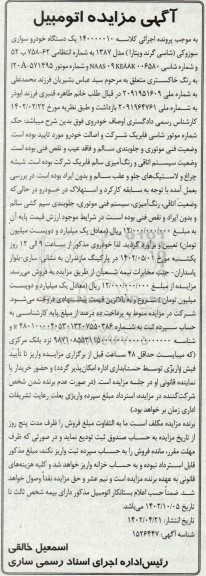 آگهی مزایده اتومبیل
به موجب پرونده اجرائی کلاسه ۱۴۰۰۰۰۰۱۰ یک دستگاه خودرو سواری
سوزوکی (شاسی گرند ویتارا) مدل ۱۳۸۷ به شماره انتظامی ۶۲-۷۵۸ ب ۵۲
و شماره شاسی
به رنگ خاکستری متعلق به مرحوم سید عباس بشیریان فرزند محمدعلی
به شماره ملی ۲۰۹۱۹۵۱۶۰۹ در قبال طلب خانم طاهره قنبری فرزند ابوذر
به شماره ملی ۲۰۹۱۹۶۴۷۶۱ بازداشت و طبق نظریه مورخ ۱۴۰۲/۰۲/۲۳
کارشناس رسمی دادگستری اوصاف خودروی فوق بدین شرح میباشد: حک
شماره موتور شاسی فابریک شرکت و اصالت خودرو مورد تایید بوده است
وضعیت فنی موتوری و جلوبندی سالم و فاقد عیب و نقص فنی بوده است
وضعیت سیستم اتاقی و رنگ‌آمیزی سالم فابریک شرکت بوده است. شیشه
چراغ و لاستیک‌های جلو و عقب سالم و بدون ایراد بوده است. در بررسی
بعمل آمده با توجه به سابقه کارکرد و استهلاک در خودرو در حالی‌که
وضعیت اتاقی، رنگ‌آمیزی، سیستم فنی موتوری، جلوبندی سیم کشی سالم
و بدون ایراد و نقص فنی بوده است در شرایط موجود ارزش قیمت پایه آن
به مبلغ ۱۲/۰۰۰/۰۰۰/۰۰۰ ریال (معادل یک میلیارد و دویست میلیون
تومان) تعیین و برآورد گردید. لذا خودروی مذکور از ساعت ۹ الی ۱۲ روز
یکشنبه مورخ ۱۴۰۲/۰۵/۰۱ در پارکینگ مازندران به نشانی: ساری-بلوار
پاسداران- جنب مخابرات نیمه شعبان از طریق مزایده به فروش می‌رسد.
مزایده از مبلغ ۱۲/۰۰۰/۰۰۰/۰۰۰ ریال (معادل یک میلیارد و دویست
میلیون تومان) شروع و به بالاترین قیمت پیشنهادی فروخته می‌شود.
شرکت در مزایده منوط به پرداخت ده درصد از مبلغ پایه کارشناسی به
حساب سپرده ثبت به شماره
شناسه نزد بانک مرکزی
(که میبایست حداقل ۴۸ ساعت قبل از برگزاری مزایده واریز تا تأیید
فیش واریزی توسط حسابداری اداره امکان‌پذیر گردد) و حضور خریدار یا
نماینده قانونی او در جلسه است. (در صورت عدم برنده شدن شخص
شرکت‌کننده در مزایده، استرداد مبلغ سپرده واریزی بعلت رعایت تشریفات
اداری زمان بر خواهد بود).
برنده مزایده مکلف است ما به التفاوت مبلغ فروش را ظرف مدت پنج روز
از تاریخ مزایده به حساب صندوق ثبت تودیع نماید و در صورتی که ظرف
مهلت مقرر، مانده فروش را به حساب سپرده ثبت واریز نکند، مبلغ مذکور
قابل استرداد نبوده و به حساب خزانه واریز خواهد شد و کلیه هزینه‌های
قانونی به عهده برنده مزایده است و نیم عشر و حق مزایده نقدا وصول خواهد
شد. ضمنا حسب اعلام بستانکار اتومبیل مذکور دارای بیمه شخص ثالث تا
تاریخ ۱۴۰۲/۱۰/۰۵ می‌باشد.
تاریخ انتشار: ۱۴۰۲/۰۴/۲۱
شناسه آگهی: ۱۵۲۶۴۴۷
اسمعیل خالقی
رئیس اداره اجرای اسناد رسمی ساری